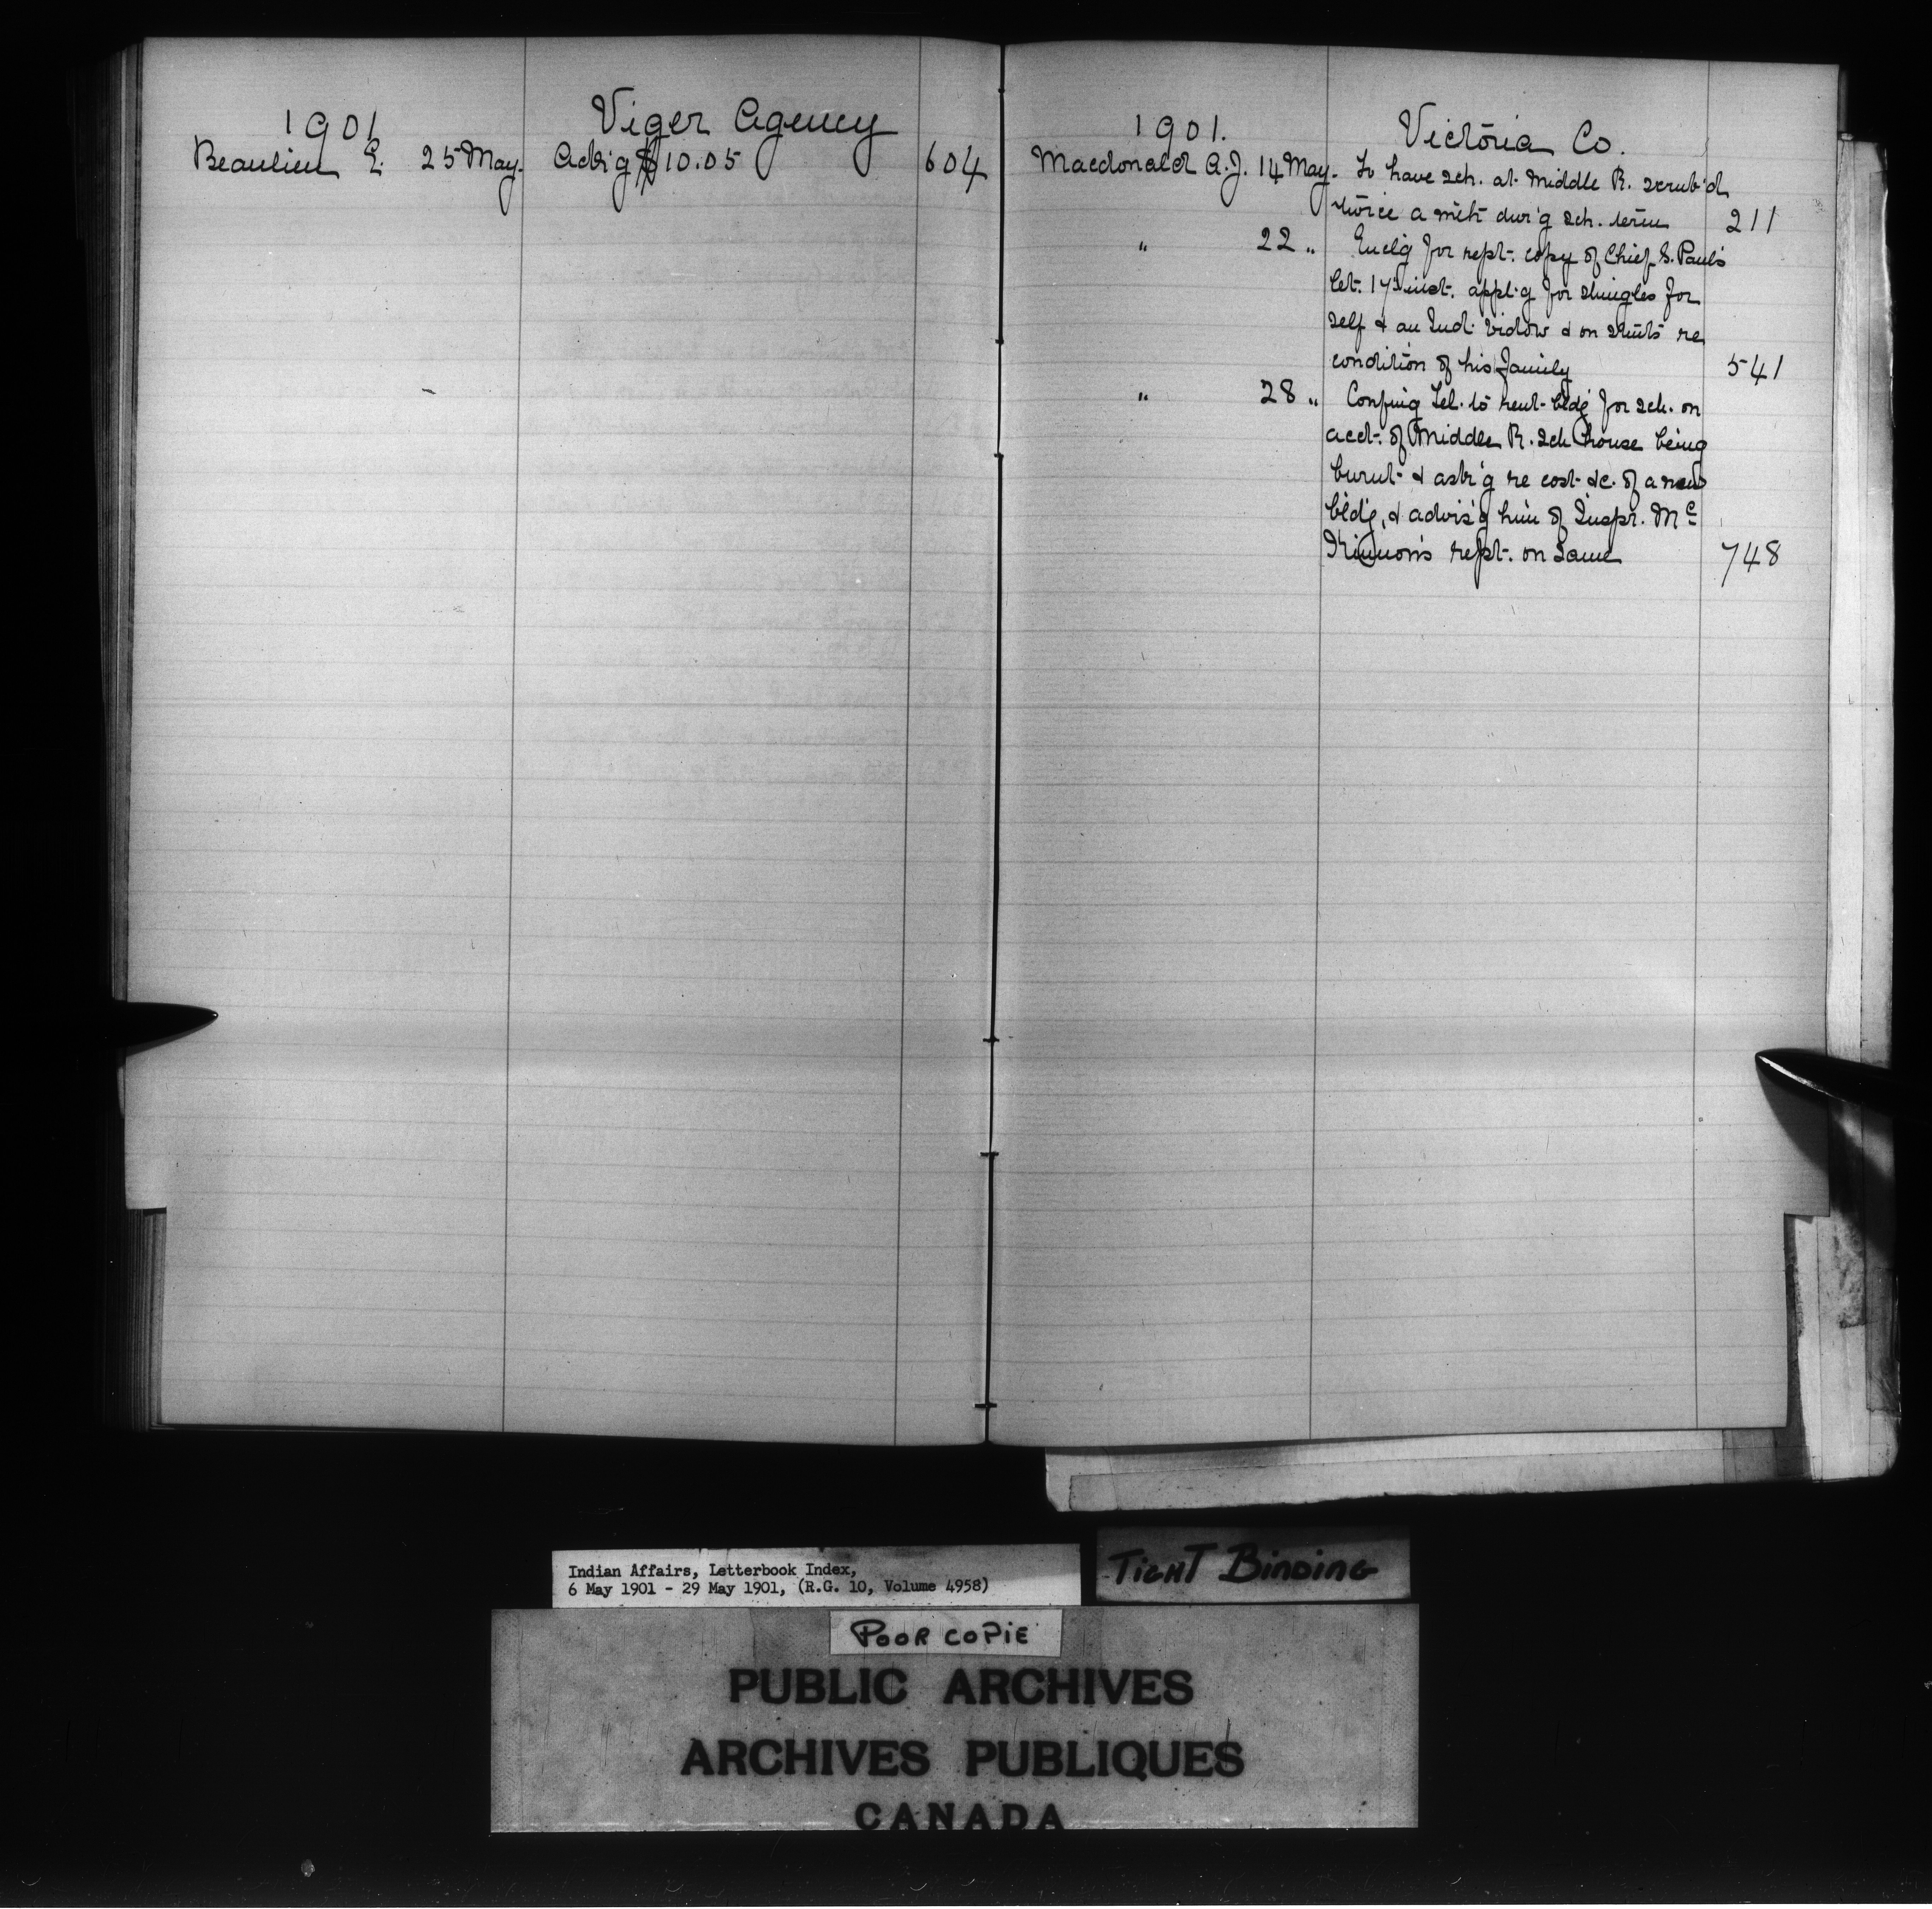 1901 Viger Agency
Beaulieu E. 25 May. Ack'g $10.05 604
1901. Victoria Co.
Macdonald A.J. 14 May. To have sch. at Middle R. scrub'd
twice a mth dur'g sch. term 211
" 22 " Encl'g for rept. copy of Chief S. Paul's
let. 17th inst. appl'g for shingles for
self & an Ind. widow & on re
condition of his family 541
" 28 " Conf'ing Tel. to rent bldg for sch. on
acct. of Middle R. sch house being
burnt & ask'g re cost &c. of a new
bldg, & advis'g him of Inspr. Mc
Kinnon's rept. on same 748
Indian Affairs, Letterbook Index,
6 May 1901 - 29 May 1901, (R.G. 10, Volume 4958)
TIGHT BINDING
POOR COPIE
PUBLIC ARCHIVES
ARCHIVES PUBLIQUES
CANADA